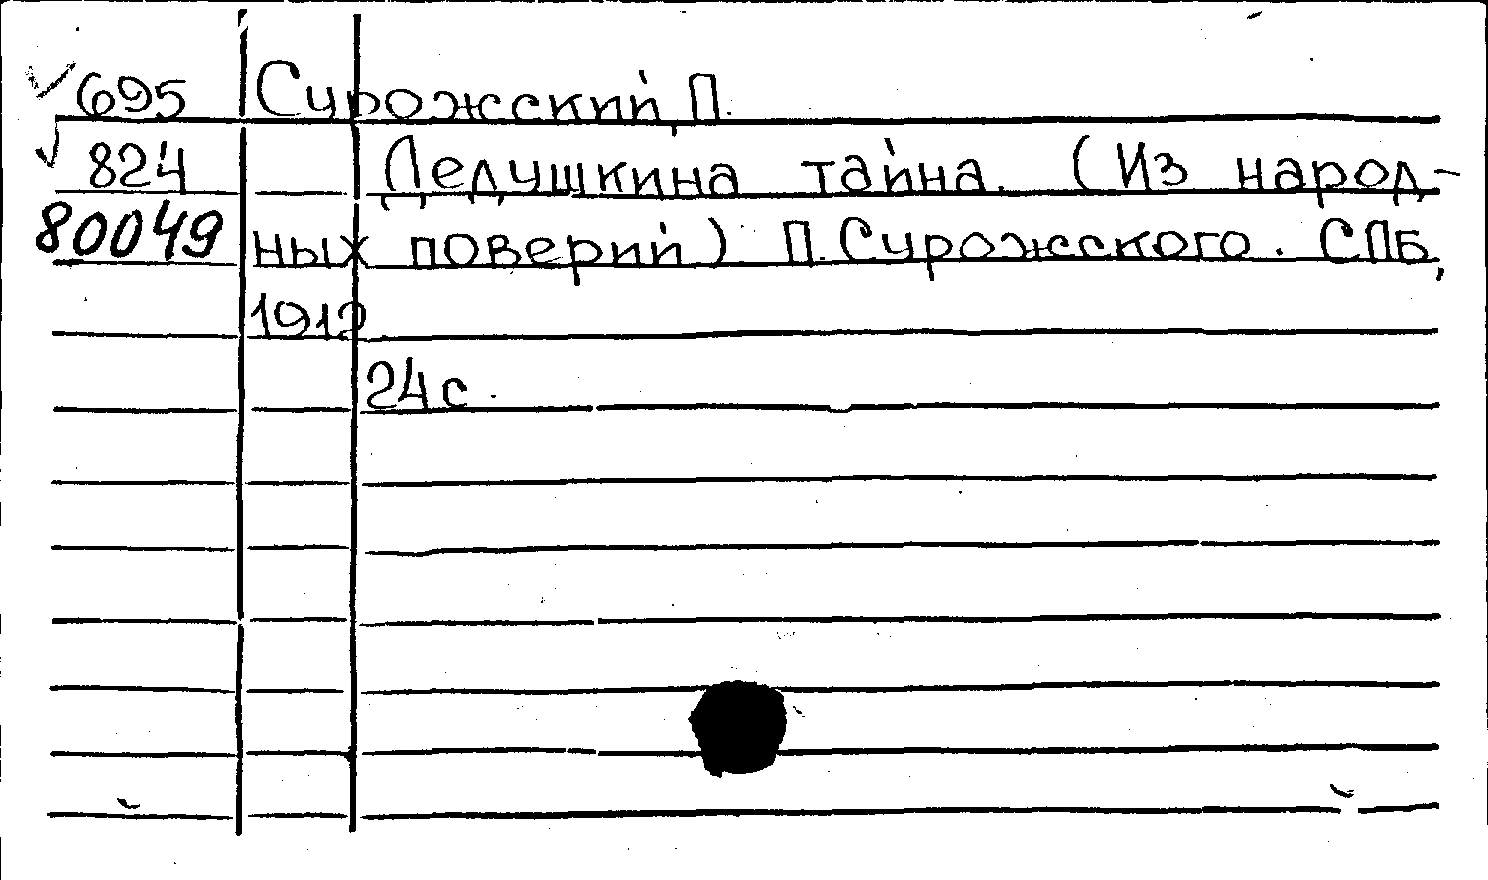 695 Сурожский, П.
824 Дедушкина тайна. (Из народ-
80049 ных поверий) П. Сурожского. СПБ,
1912
24 с.